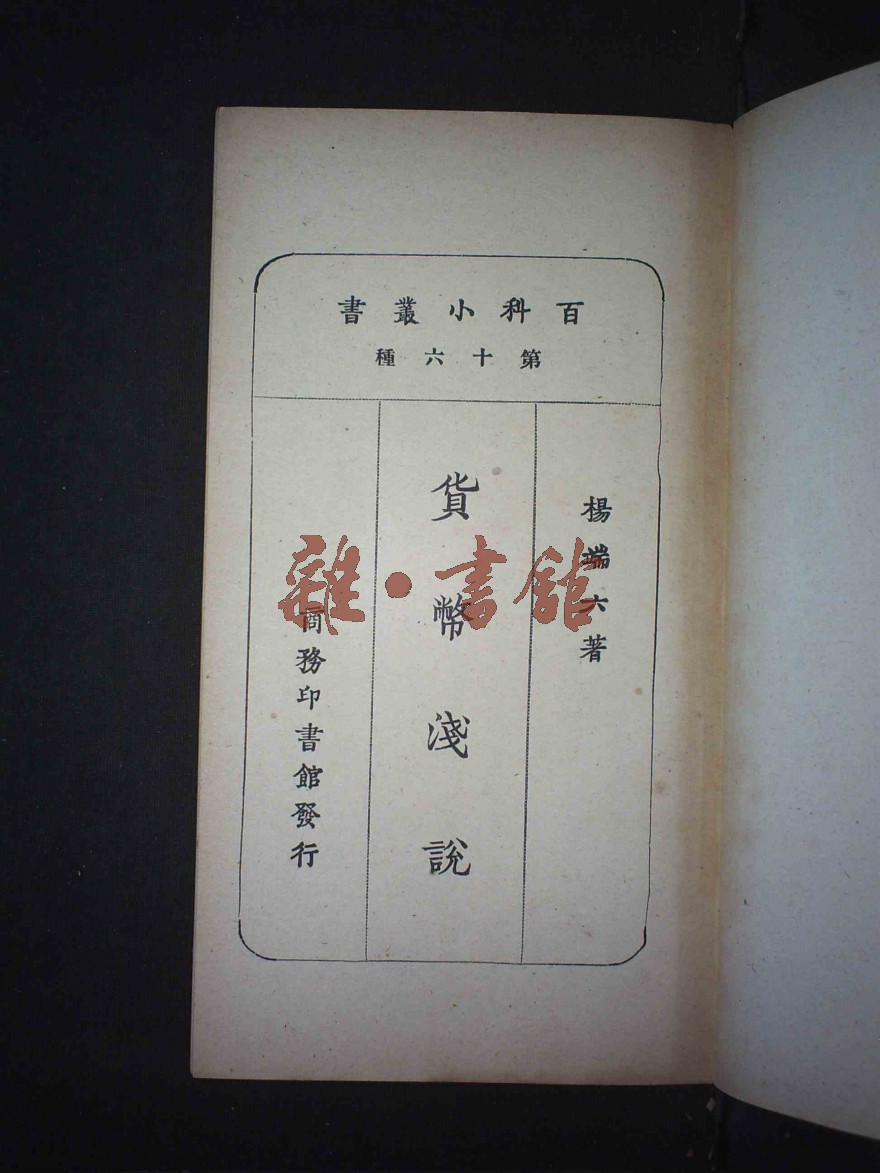 百科小叢書
第十六種
楊端六著
貨幣淺說
商務印書館發行
雜·書館